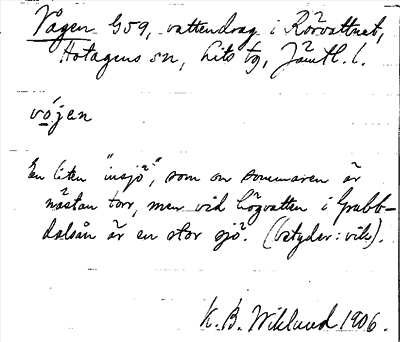 Vågen G59, vattendrag i Rörvattnet,
Hotagens sn, Lits tg, Jämtl. l.
vó̱jen
En liten "insjö", som om sommaren är
nästan torr, men vid högvatten i Grubb-
dalsån är en stor sjö. (betyder: vik).
K. B. Wiklund 1906.